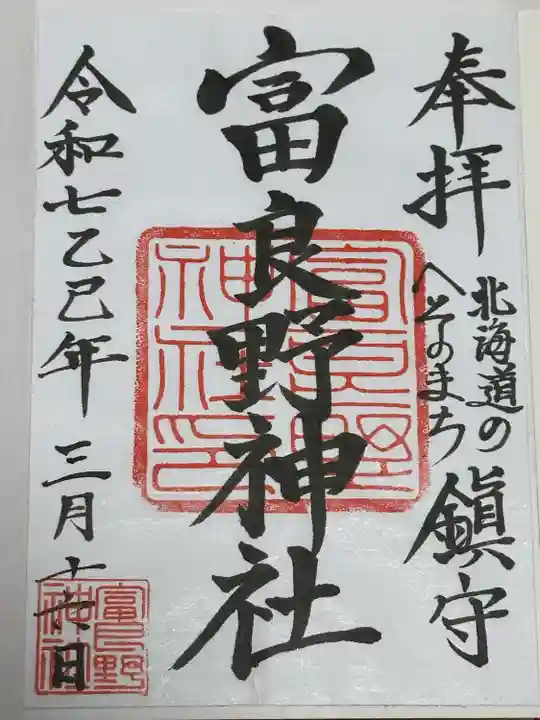 奉拝
北海道の
へそのまち
鎮守
富良野神社
富良野神社印
令和七乙巳年三月十六日
富良野神社